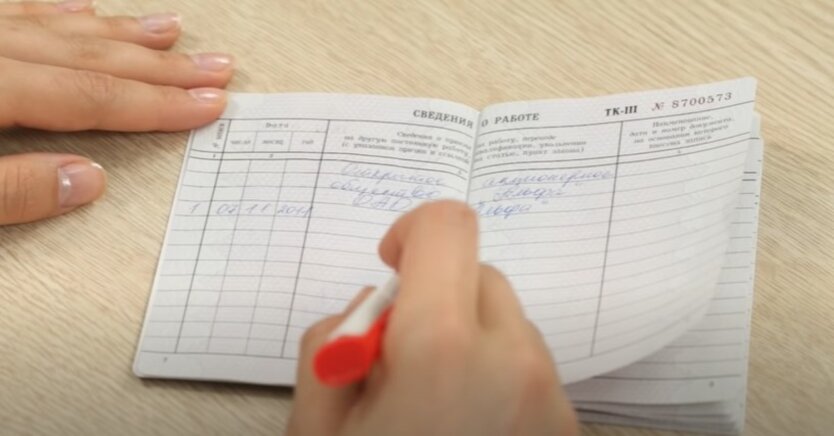 СВЕДЕНИЯ О РАБОТЕ ТК-III № 8700573
Дата
число месяц год
Сведения о приеме на работу, переводе
на другую постоянную работу, квалификации, увольнении
(с указанием причин и ссылкой на статью, пункт закона)
Наименование,
дата и номер документа,
на основании которого
внесена запись
1 2 3
Открытое акционерное
общество "Альфа"
1 07 11 2011 ОАО "Альфа"